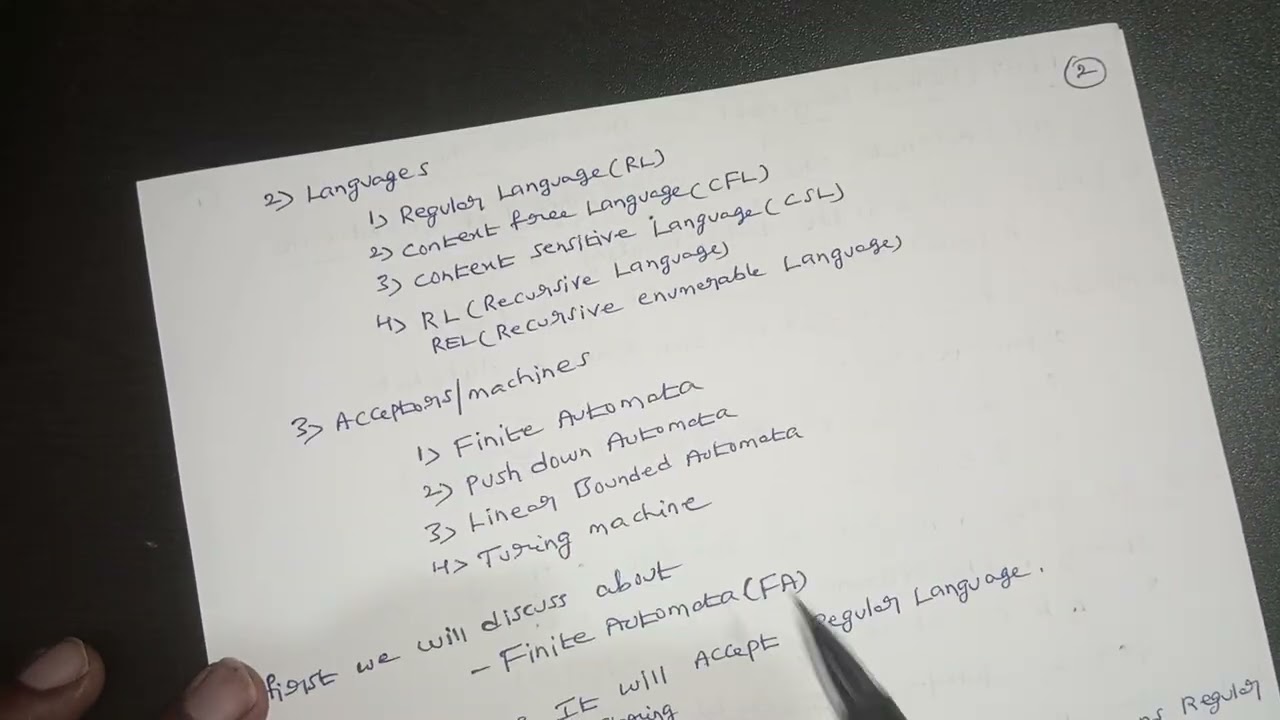 2
2) Languages
1) Regular Language(RL)
2) Context free Language(CFL)
3) Context sensitive Language(CSL)
4) RL(Recursive Language)
REL(Recursive enumerable Language)
3) Acceptors/machines
1) Finite Automata
2) Push down Automata
3) Linear Bounded Automata
4) Turing machine
first we will discuss about
- Finite Automata(FA)
It will Accept Regular Language.
Regular